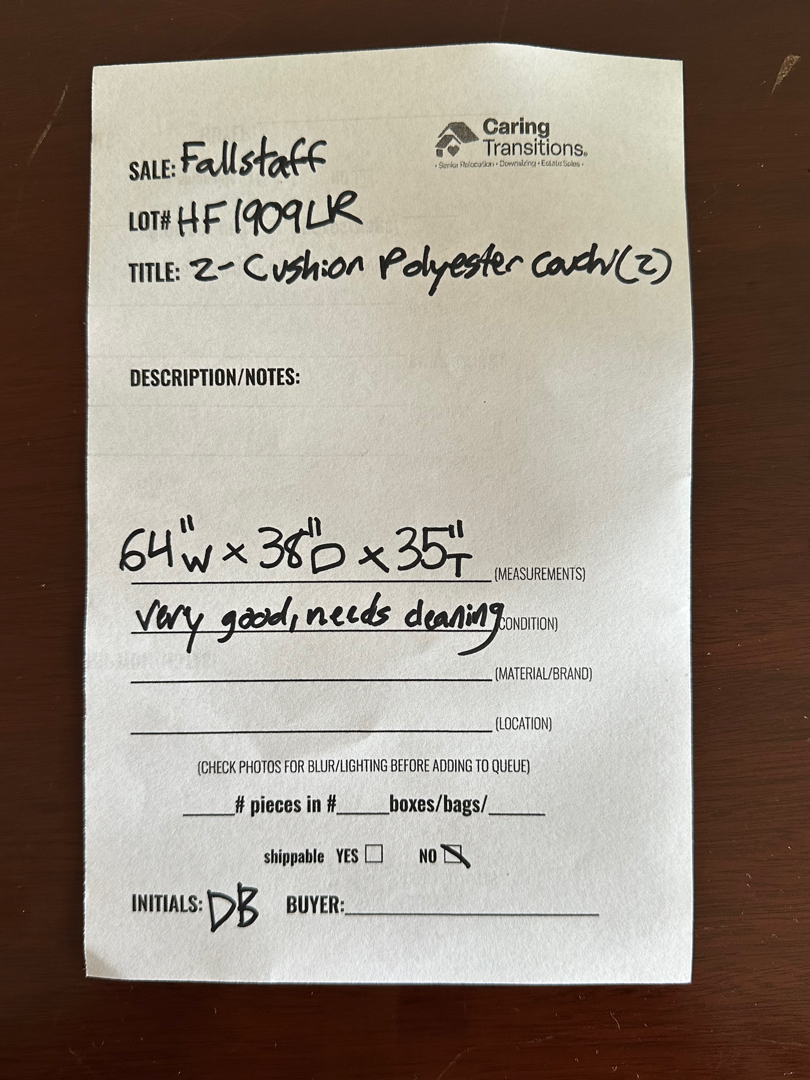 Caring
Transitions®
• Senior Relocation • Downsizing • Estate Sales •
SALE: Fallstaff
LOT# HF1909LR
TITLE: 2-Cushion Polyester Couch (2)
DESCRIPTION/NOTES:
64"W x 38"D x 35"T (MEASUREMENTS)
very good, needs cleaning CONDITION)
(MATERIAL/BRAND)
(LOCATION)
(CHECK PHOTOS FOR BLUR/LIGHTING BEFORE ADDING TO QUEUE)
____# pieces in #____boxes/bags/____
shippable YES ☐ NO ☒
INITIALS: DB BUYER: